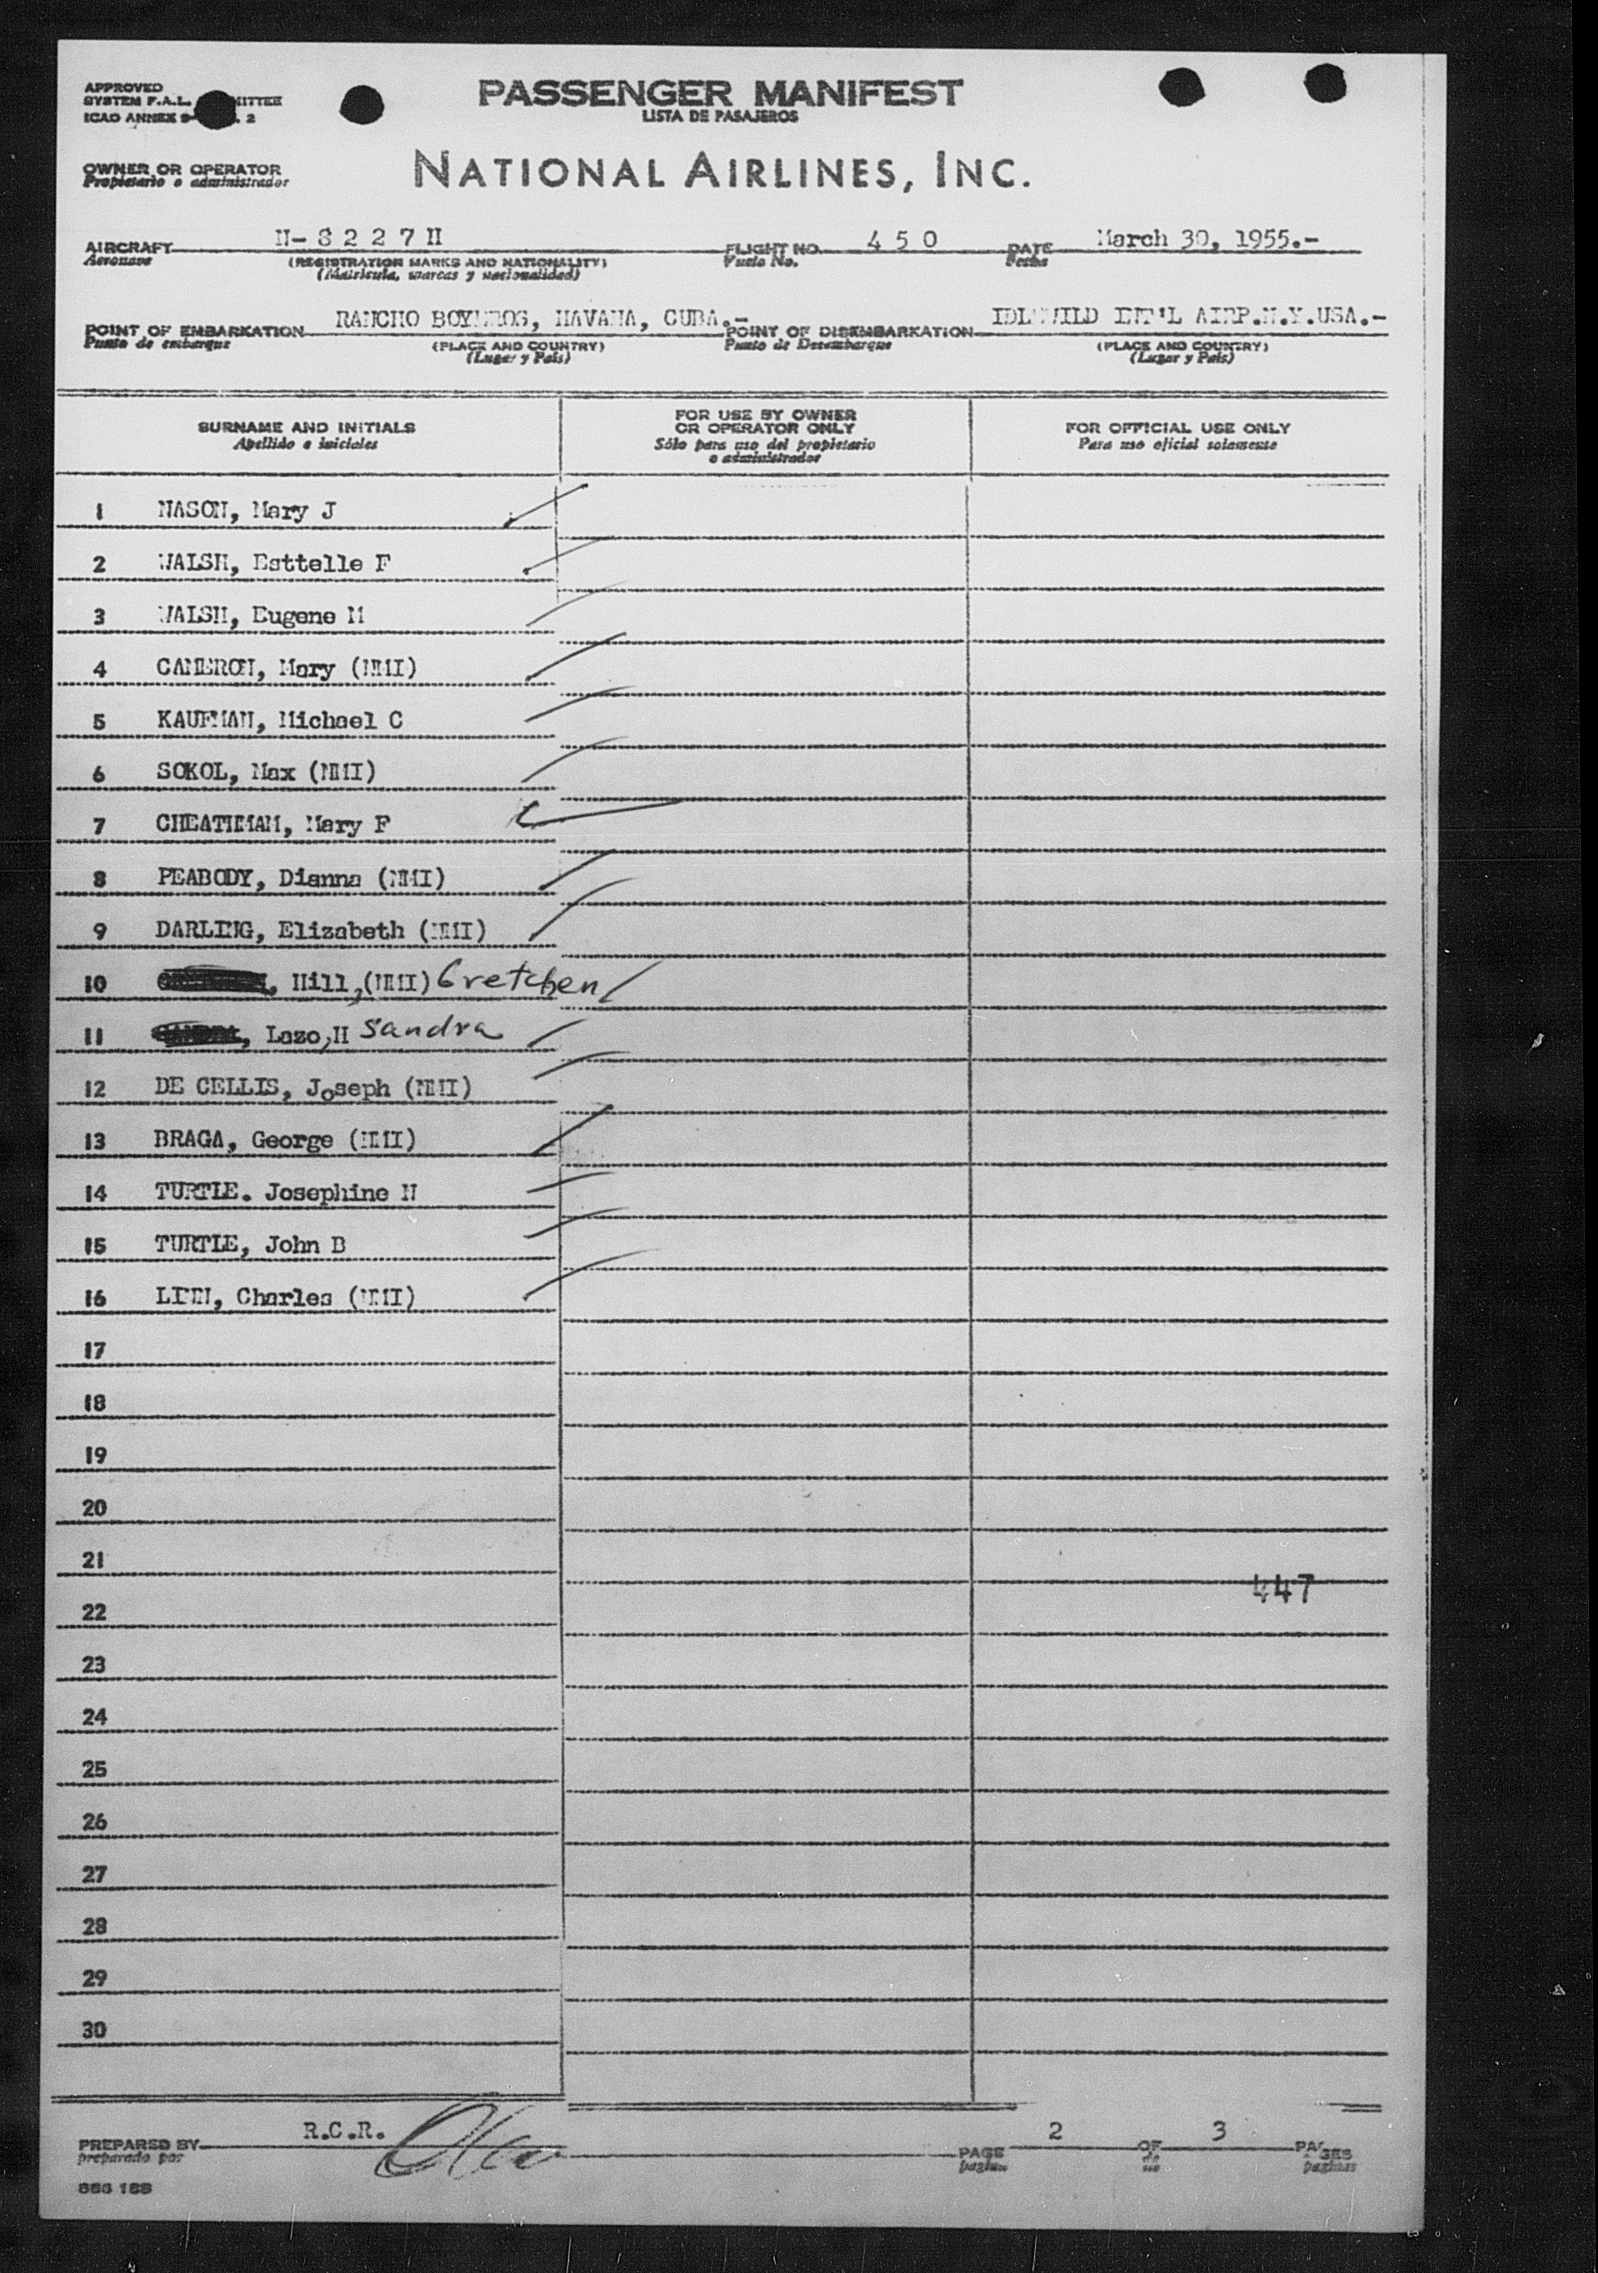 PASSENGER MANIFEST
LISTA DE PASAJEROS
APPROVED
SYSTEM F.A.L. MITTEE
ICAO ANNEX 9 2
OWNER OR OPERATOR
Propietario o administrador
NATIONAL AIRLINES, INC.
AIRCRAFT N-8227H FLIGHT NO. 450 DATE March 30, 1955.-
Aeronave (REGISTRATION MARKS AND NATIONALITY) Vuelo No. Fecha
(Matrícula, marcas y nacionalidad)
POINT OF EMBARKATION RANCHO BOYEROS, HAVANA, CUBA.- POINT OF DISEMBARKATION IDLEWILD INT'L AIRP.N.Y.USA.-
Punto de embarque (PLACE AND COUNTRY) Punto de Desembarque (PLACE AND COUNTRY)
(Lugar y País) (Lugar y País)
SURNAME AND INITIALS
Apellido e iniciales
FOR USE BY OWNER
OR OPERATOR ONLY
Sólo para uso del propietario
o administrador
FOR OFFICIAL USE ONLY
Para uso oficial solamente
1 NASON, Mary J
2 WALSH, Esttelle F
3 WALSH, Eugene M
4 CAMERON, Mary (NMI)
5 KAUFMAN, Michael C
6 SOKOL, Max (NMI)
7 CHEATHMAM, Mary F
8 PEABODY, Dianna (NMI)
9 DARLING, Elizabeth (NMI)
10 , Hill,(NMI) Gretchen
11 , Lazo,H Sandra
12 DE CELLIS, Joseph (NMI)
13 BRAGA, George (NMI)
14 TURTLE. Josephine N
15 TURTLE, John B
16 Charles (NMI)
17
18
19
20
21
447
22
23
24
25
26
27
28
29
30
PREPARED BY R.C.R. PAGE 2 OF 3 PAGES
preparado por pagina de paginas